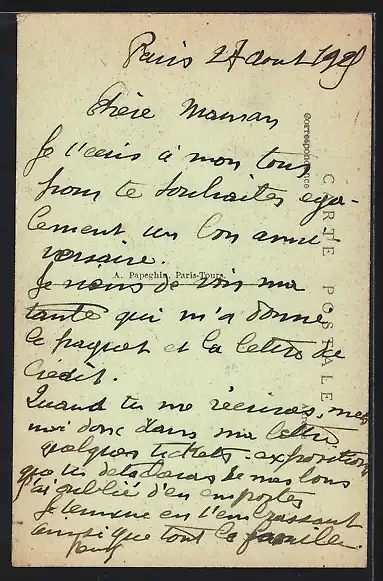 Paris 27 aout 1925
Chère Maman
Je t'ecris à mon tour
pour te souhaiter ega-
lement un bon anni-
versaire.
A. Papeghin, Paris-Tours.
Je viens de voir ma
tante qui m'a donné
le paquet et la lettre de
Crédit.
Quand tu me réecriras, mets
moi donc dans ma lettre
quelques tickets exposition
que tu detacheras de mes bons
j'ai oublié d'en emporter
Je termine en t'embrassant
ainsi que tout la famille.
CARTE POSTALE
Correspondance